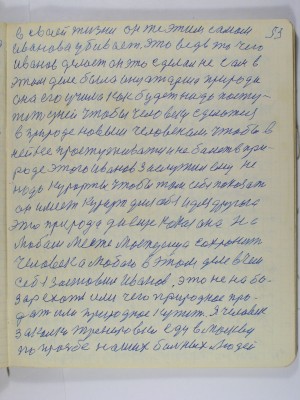 53
в своей жизни он же этим самым
Иванова убивает, это ведь то чего
Иванов делает он это сделал не сам в
этом деле была она атаржна природа
она его учила как будет надо посту-
пить ней чтобы человеку сделаться
в природе новым человеком чтобы в
ней не простуживаться и не болеть в при-
роде этого Иванов заслужил ему не
надо курорты чтобы там себя показать
он имеет курорт для себя и для других
это природа да еще какая она на
любом месте молодцица сохраняет
человека любого в этом деле всем
себя заставил Иванов, это не на ба-
зар ехать или чего природное про-
дать или природное купить. Я человек
закалки тренировки еду в Москву
по просьбе наших больных людей